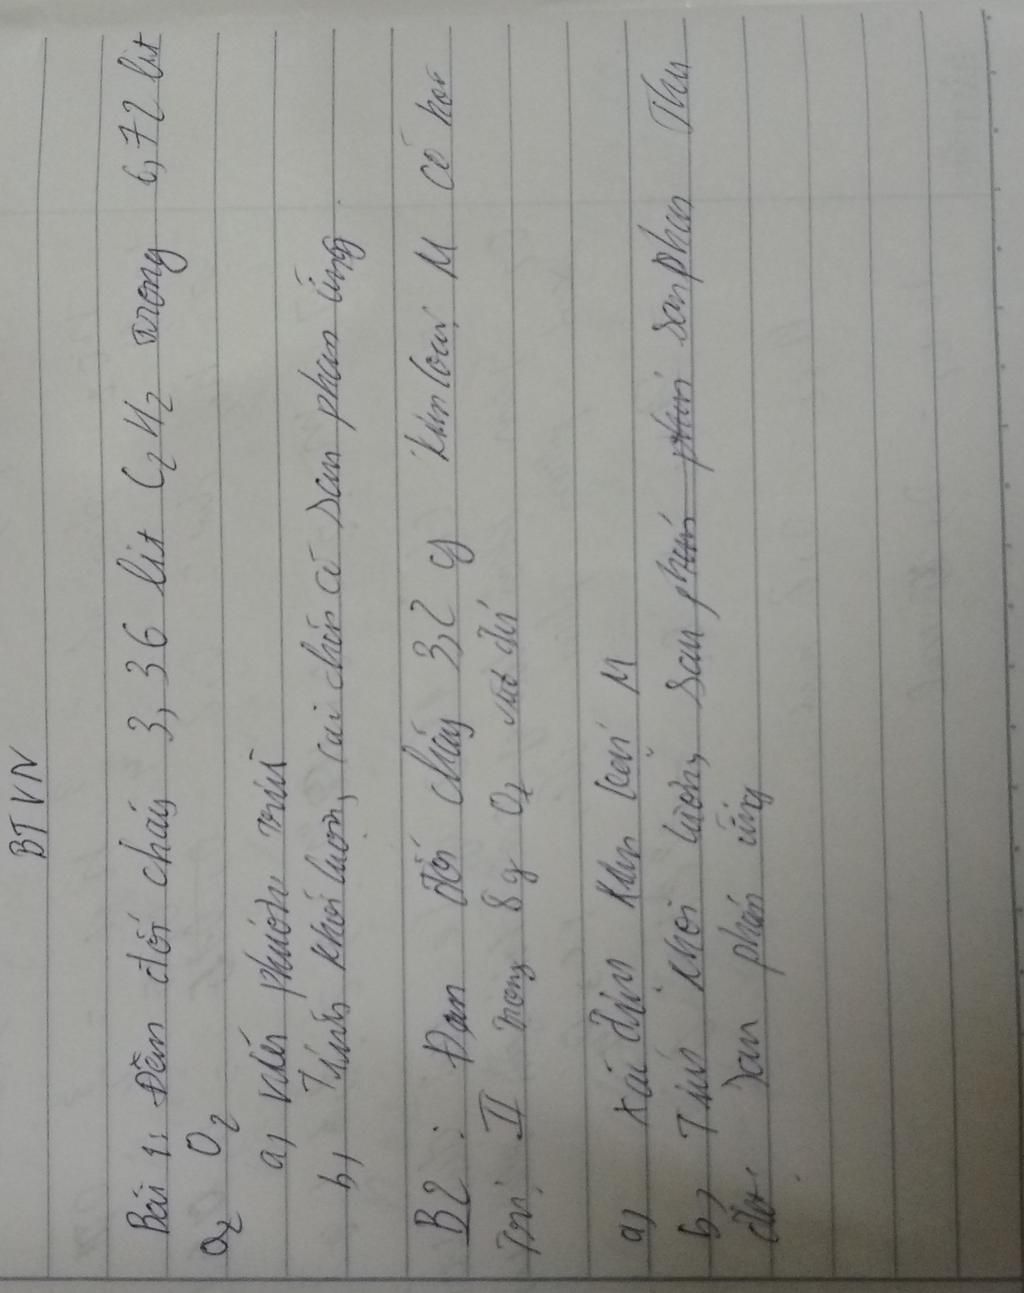 BTVN
Bài 1: Đem đốt cháy 3,36 lit C2H2 trong 6,72 lit
O2
a, viết phương trình
b, Tính khối lượng các chất có sau phản ứng
B2: Đem đốt cháy 3,2 g kim loại M có hoá
trị II trong 8g O2
a, Xác định kim loại M
b, Tính khối lượng sau phản sản phẩm Thu
được sau phản ứng